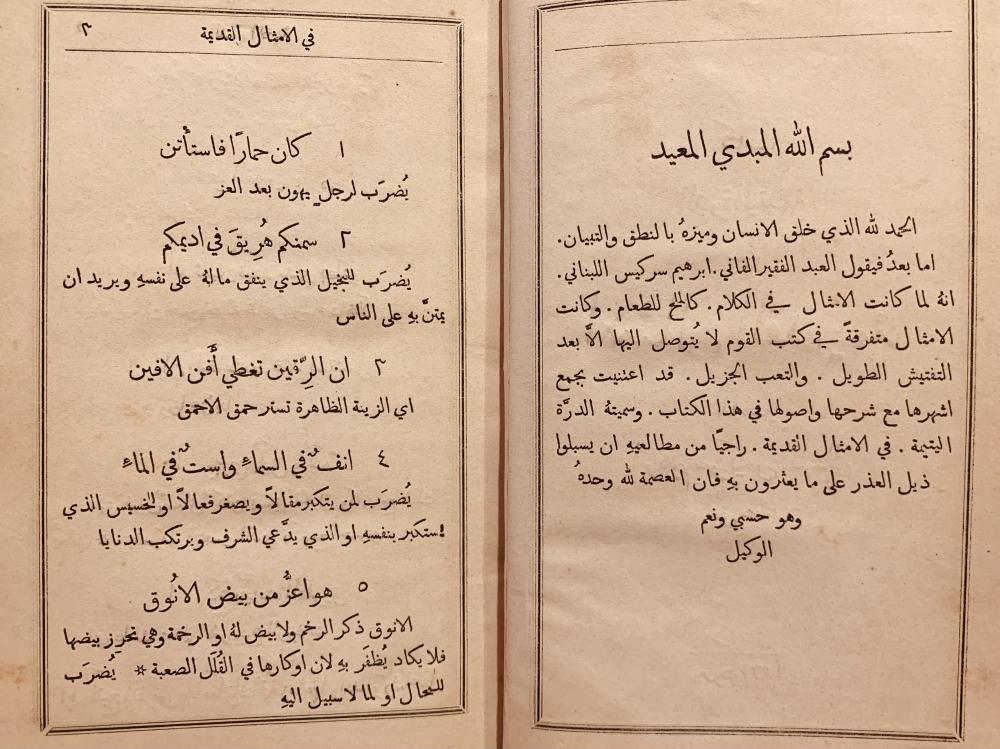 بسم الله المبدي المعيد
الحمد لله الذي خلق الانسان وميزهُ بالنطق والتبيان.
اما بعدُ فيقول العبد الفقير الفاني. ابرهيم سركيس اللبناني.
انهُ لما كانت الامثال في الكلام. كالملح للطعام. وكانت
الامثال متفرقةً في كتب القوم لا يُتوصل اليها الاَّ بعد
التفتيش الطويل. والتعب الجزيل. قد اعتنيت بجمع
اشهرها مع شرحها واصولها في هذا الكتاب. وسميتهُ الدرَّة
اليتيمة. في الامثال القديمة. راجيًا من مطالعيهِ ان يسبلوا
ذيل العذر على ما يعثرون بهِ فان العصمة لله وحدهُ
وهو حسبي ونعم
الوكيل
في الامثال القديمة ٢
١ كان حمارًا فاستأتن
يُضرَب لرجلٍ يهون بعد العز
٢ سمنكم هُرِيقَ في اديمكم
يُضرَب للبخيل الذي ينفق مالهُ على نفسهِ ويريد ان
يمتنَّ بهِ على الناس
٣ ان الرِّقين تغطي أَفن الافين
اي الزينة الظاهرة تستر حمق الاحمق
٤ انفٌ في السماءِ واستٌ في الماءِ
يُضرَب لمن يتكبر مقالاً ويصغر فعالاً او للخسيس الذي
يستكبر بنفسهِ او الذي يدَّعي الشرف ويرتكب الدنايا
٥ هو اعزُّ من بيض الانُوق
الانوق ذكر الرخم ولا بيض لهُ او الرخمة وهي تحرز بيضها
فلا يكاد يُظفَر بهِ لان اوكارها في القُلَل الصعبة * يُضرَب
للمحال او لما لا سبيل اليهِ